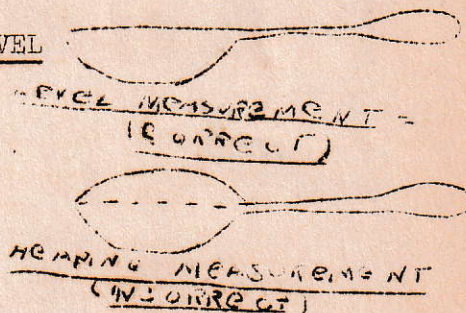 VEL
LEVEL MEASUREMENT =
(CORRECT)
HEAPING MEASUREMENT
(INCORRECT)